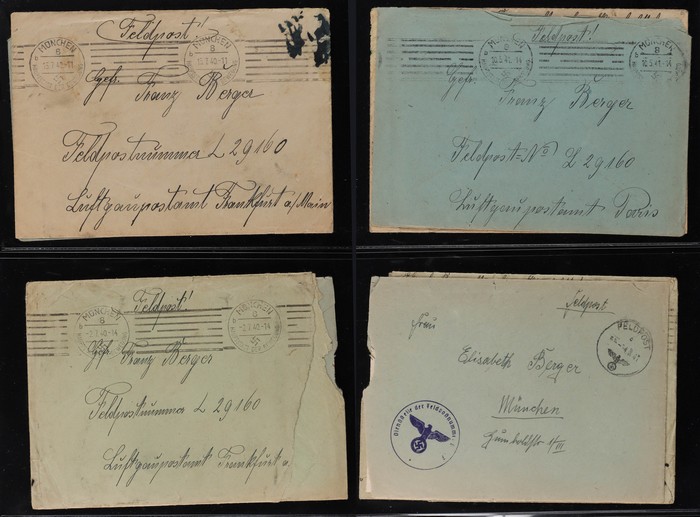 Feldpost!
MÜNCHEN
8
MÜNCHEN
8
Gefr. Franz Berger
Feldpostnummer L 29160
Luftgaupostamt Frankfurt a/Main
Feldpost!
8
MÜNCHEN
8
Gefr. Franz Berger
Feldpost=No L 29160
Luftgaupostamt Paris
Feldpost!
MÜNCHEN
8
-2.7.40.-14
MÜNCHEN
8
-2.7.40.-14
Gefr. Franz Berger
Feldpostnummer L 29160
Luftgaupostamt Frankfurt a.
Feldpost
FELDPOST
Frau
Elisabeth Berger
München
Dienststelle der Feldpostnummer